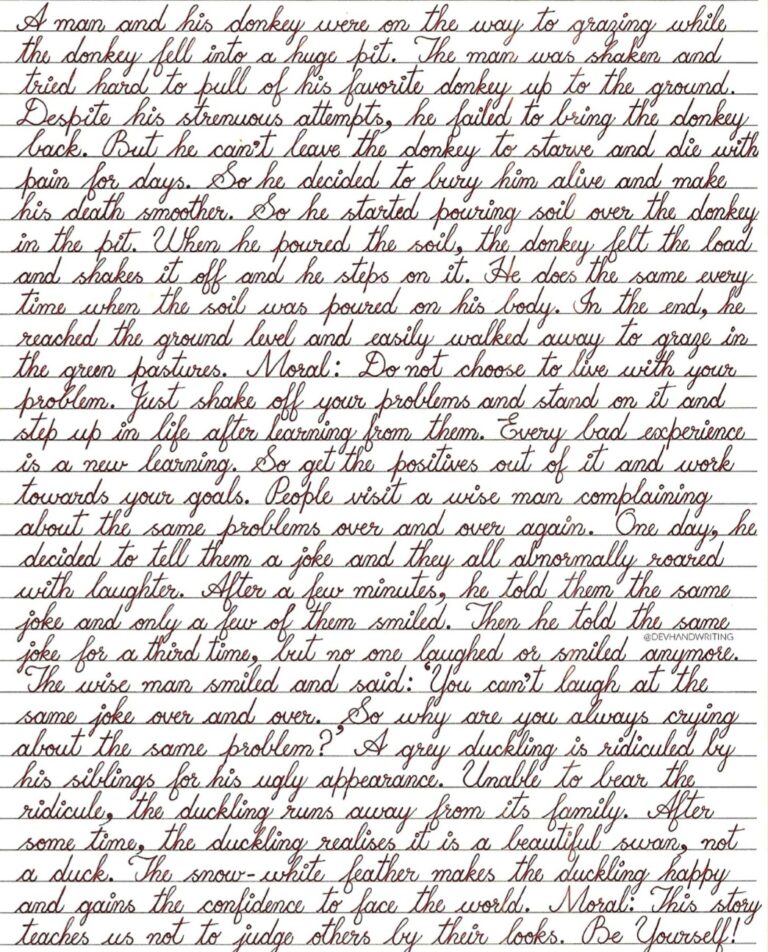 A man and his donkey were on the way to grazing while
the donkey fell into a huge pit. The man was shaken and
tried hard to pull of his favorite donkey up to the ground.
Despite his strenuous attempts, he failed to bring the donkey
back. But he can't leave the donkey to starve and die with
pain for days. So he decided to bury him alive and make
his death smoother. So he started pouring soil over the donkey
in the pit. When he poured the soil, the donkey felt the load
and shakes it off and he steps on it. He does the same every
time when the soil was poured on his body. In the end, he
reached the ground level and easily walked away to graze in
the green pastures. Moral: Do not choose to live with your
problem. Just shake off your problems and stand on it and
step up in life after learning from them. Every bad experience
is a new learning. So get the positives out of it and work
towards your goals. People visit a wise man complaining
about the same problems over and over again. One day, he
decided to tell them a joke and they all abnormally roared
with laughter. After a few minutes, he told them the same
joke and only a few of them smiled. Then he told the same
@DEVHANDWRITING
joke for a third time, but no one laughed or smiled anymore.
The wise man smiled and said: 'You can't laugh at the
same joke over and over. So why are you always crying
about the same problem?' A grey duckling is ridiculed by
his siblings for his ugly appearance. Unable to bear the
ridicule, the duckling runs away from its family. After
some time, the duckling realises it is a beautiful swan, not
a duck. The snow-white feather makes the duckling happy
and gains the confidence to face the world. Moral: This story
teaches us not to judge others by their looks. Be Yourself!